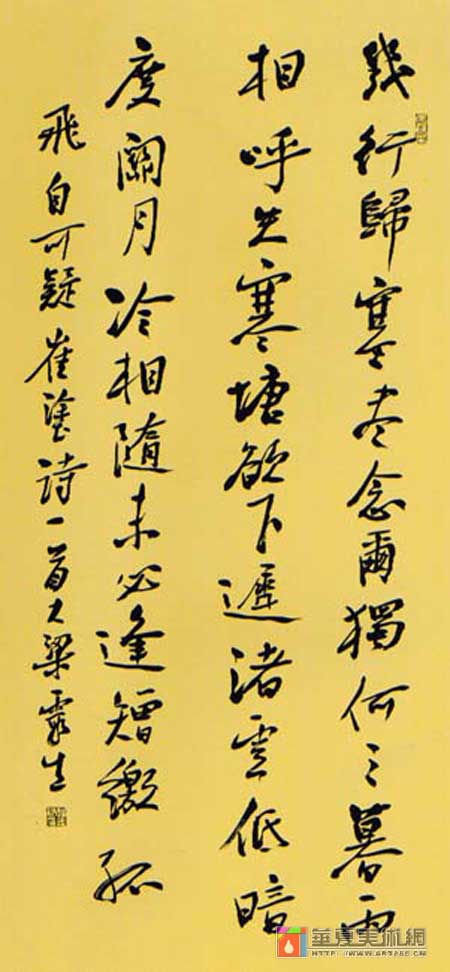 幾行歸塞盡念爾獨何之暮雨
相呼失寒塘欲下遲渚雲低暗
度關月冷相隨未必逢矰繳孤
飛自可疑 崔塗詩一首大梁生
華夏美術網